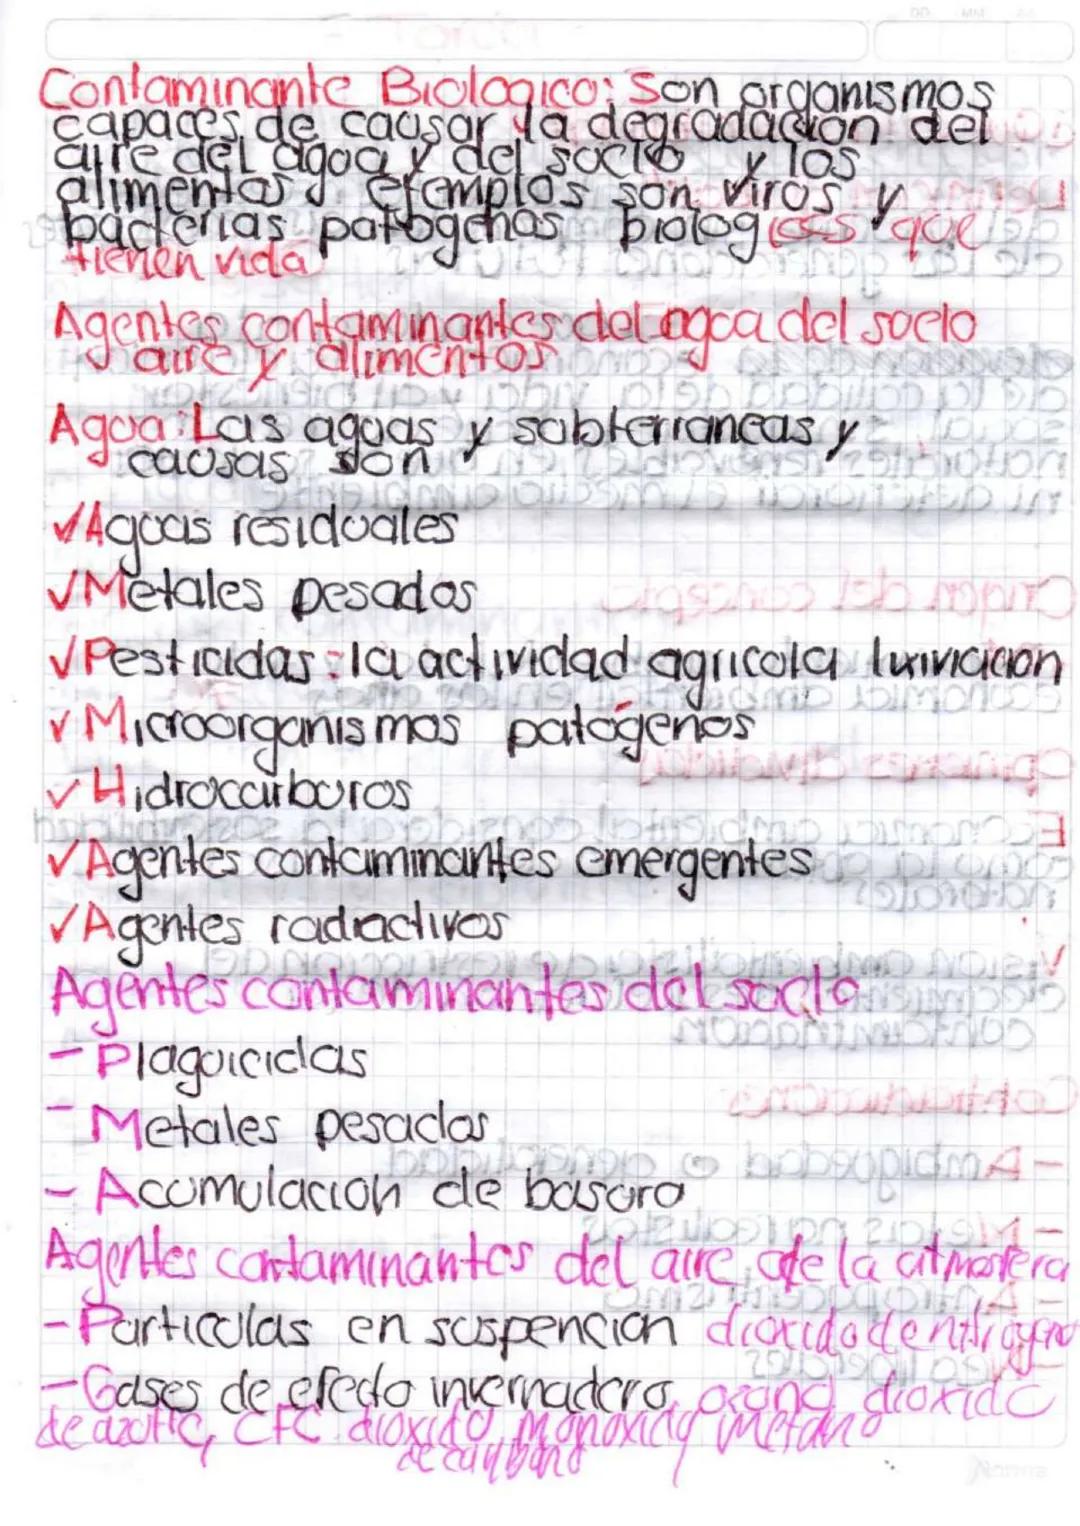 Contaminante Biologico: Son organismos
capaces de causar la degradación del
aire del agoa y del soelo y los
alimentos ejemplos son viros y
bacterias patogenas biologicos que
tienen vida
Agentes contaminantes del agoa del soelo
aire y alimentos
Agoa: Las agoas y sobterraneas y
caosas son
✓Agoas residoales
✓Metales pesados
✓Pesticidas: la actividad agricola lixiviacion
✓Microorganismos patógenos
✓Hidrocarboros
✓Agentes contaminantes emergentes
✓Agentes radiactivos
Agentes contaminantes del soelo
-Plagoicidas
-Metales pesados
-Acomolacion de basora
Agentes contaminantes del aire de la atmosfera
-Particolas en sospencion dioxido de nitrogeno
-Gases de efecto invernadero, ozono, dioxido
de azofre, CFC dioxido, monoxido y metano
de carbono
Norma